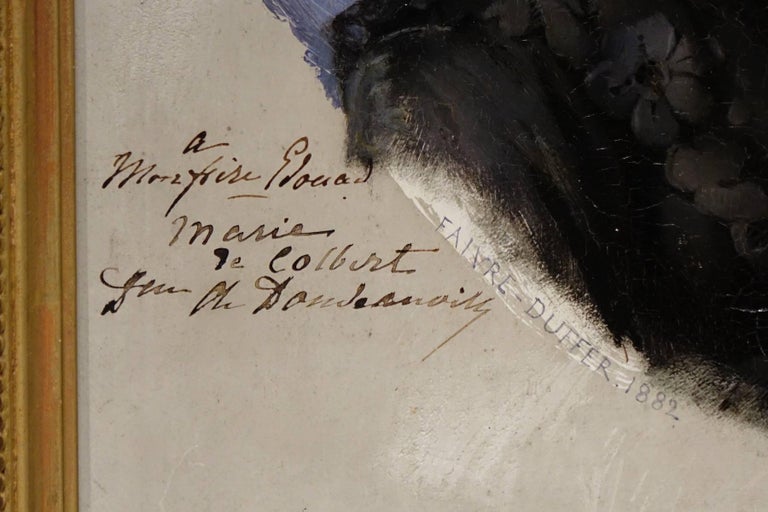 a
Mon frère Edouad
Marie
de Colbert
Dsse de Doudeauville
FAIVRE-DUFFER.1882